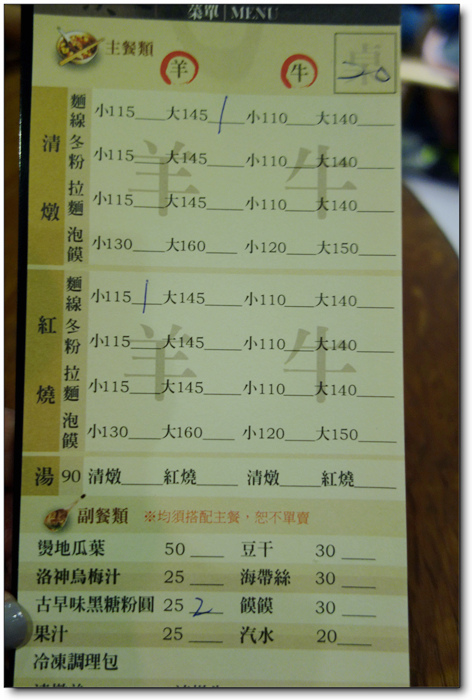 菜單 | MENU
主餐類 羊 牛 桌 20
清燉
麵線 小115 大145 1 小110 大140
冬粉 小115 大145 小110 大140
拉麵 小115 大145 小110 大140
泡饃 小130 大160 小120 大150
羊 牛
紅燒
麵線 小115 1 大145 小110 大140
冬粉 小115 大145 小110 大140
拉麵 小115 大145 小110 大140
泡饃 小130 大160 小120 大150
羊 牛
湯 90 清燉 紅燒 清燉 紅燒
副餐類 ※均須搭配主餐,恕不單賣
燙地瓜葉 50 豆干 30
洛神烏梅汁 25 海帶絲 30
古早味黑糖粉圓 25 2 饃饃 30
果汁 25 汽水 20
冷凍調理包